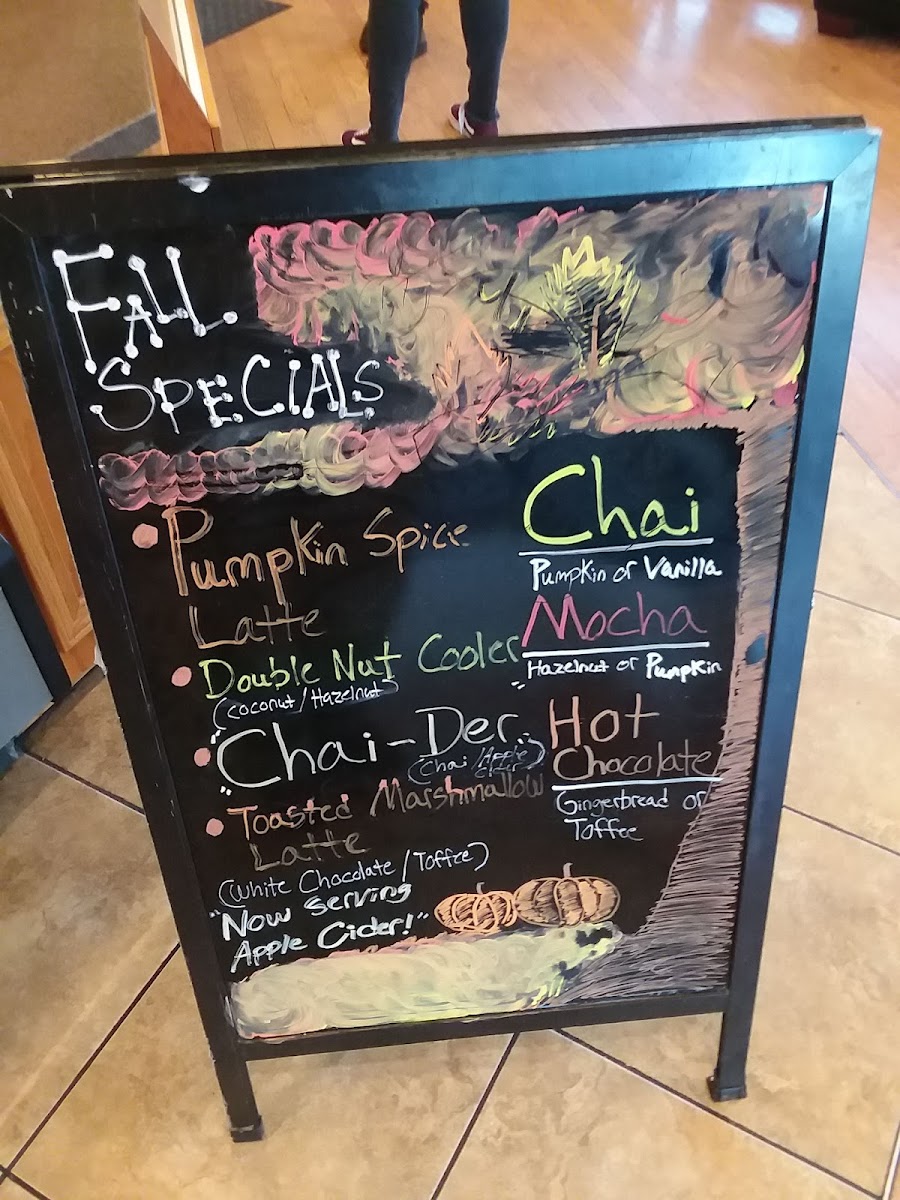 FALL
SPECIALS
• Pumpkin Spice
Latte
• Double Nut Cooler
(coconut/Hazelnut)
• "Chai-Der"
(Chai/Apple
Cider)
• Toasted Marshmallow
Latte
(White Chocolate/Toffee)
"Now serving
Apple Cider!"
Chai
Pumpkin or Vanilla
Mocha
Hazelnut or Pumpkin
Hot
Chocolate
Gingerbread or
Toffee